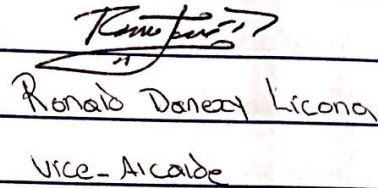 Ronald Danexy Licona
Vice-Alcalde